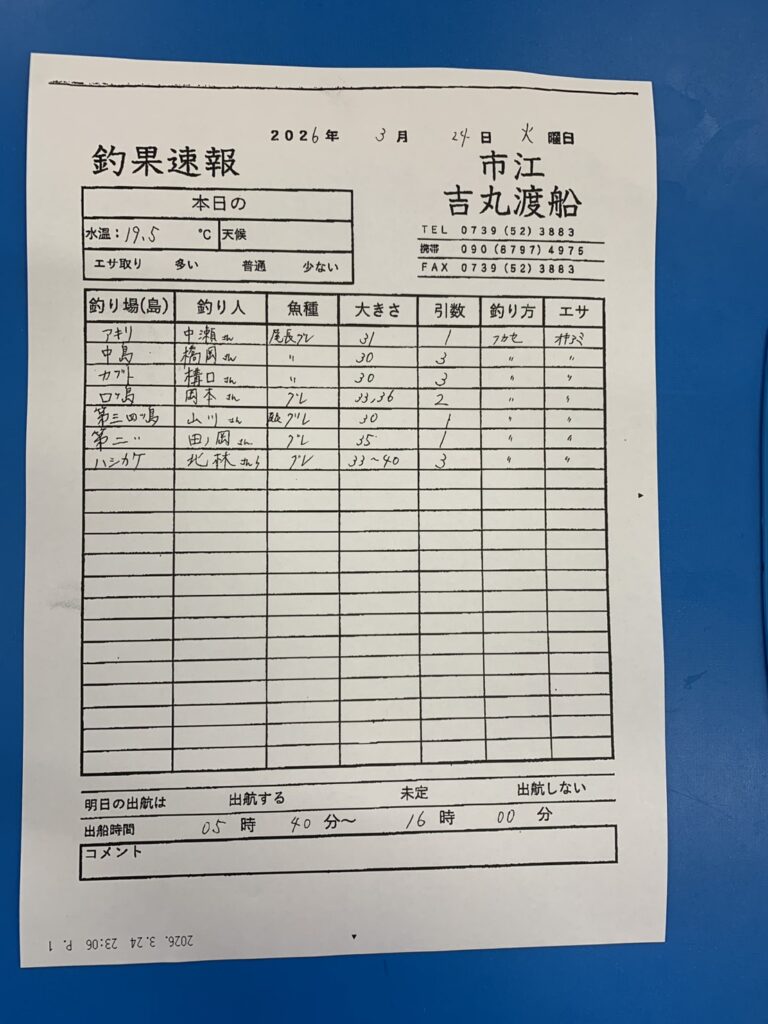 2026年 3月 24日 火曜日
釣果速報
市江
吉丸渡船
本日の
水温:19.5 ℃ 天候
エサ取り 多い 普通 少ない
TEL 0739(52)3883
携帯 090(8797)4975
FAX 0739(52)3883
釣り場(島) 釣り人 魚種 大きさ 引数 釣り方 エサ
アキリ 中瀬さん 尾長グレ 31 1 フカセ オキアミ
中島 橋岡さん 〃 30 3 〃 〃
カブト 構口さん 〃 30 3 〃 〃
口ツ島 岡本さん グレ 33,36 2 〃 〃
第三四ツ島 山川さん 尾長グレ 30 1 〃 〃
第二〃 田ノ岡さん グレ 35 1 〃 〃
ハシカケ 北林さんら グレ 33~40 3 〃 〃
明日の出航は 出航する 未定 出航しない
出船時間 05時 40分~ 16時 00分
コメント
2026. 3.24 23:06 P. 1